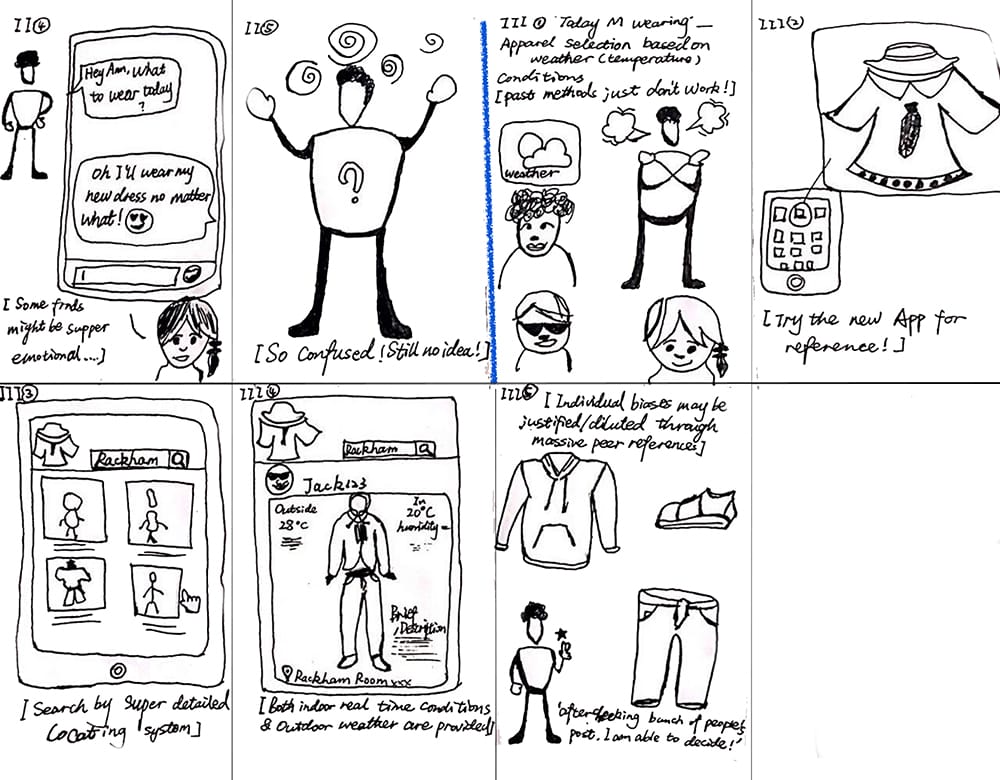 II④
Hey Ann, what
to wear today
?
Oh I'll wear my
new dress no matter
what!
[Some frnds
might be supper
emotional....]
II⑤
?
[So Confused! Still no idea!]
III① 'Today M wearing' —
Apparel selection based on
weather (temperature)
Conditions
[past methods just don't work!]
weather
III②
[Try the new App for
reference!]
III③
Rackham
[Search by Super detailed
Locating system]
III④
Rackham
Jack123
Outside
28°C
In
20°C
humidity=
Brief
Description
Rackham Room xxx
[Both indoor real time conditions
& Outdoor weather are provided]
III⑤
[Individual biases may be
justified/diluted through
massive peer references]
'after seeking bunch of people's
post. I am able to decide!'